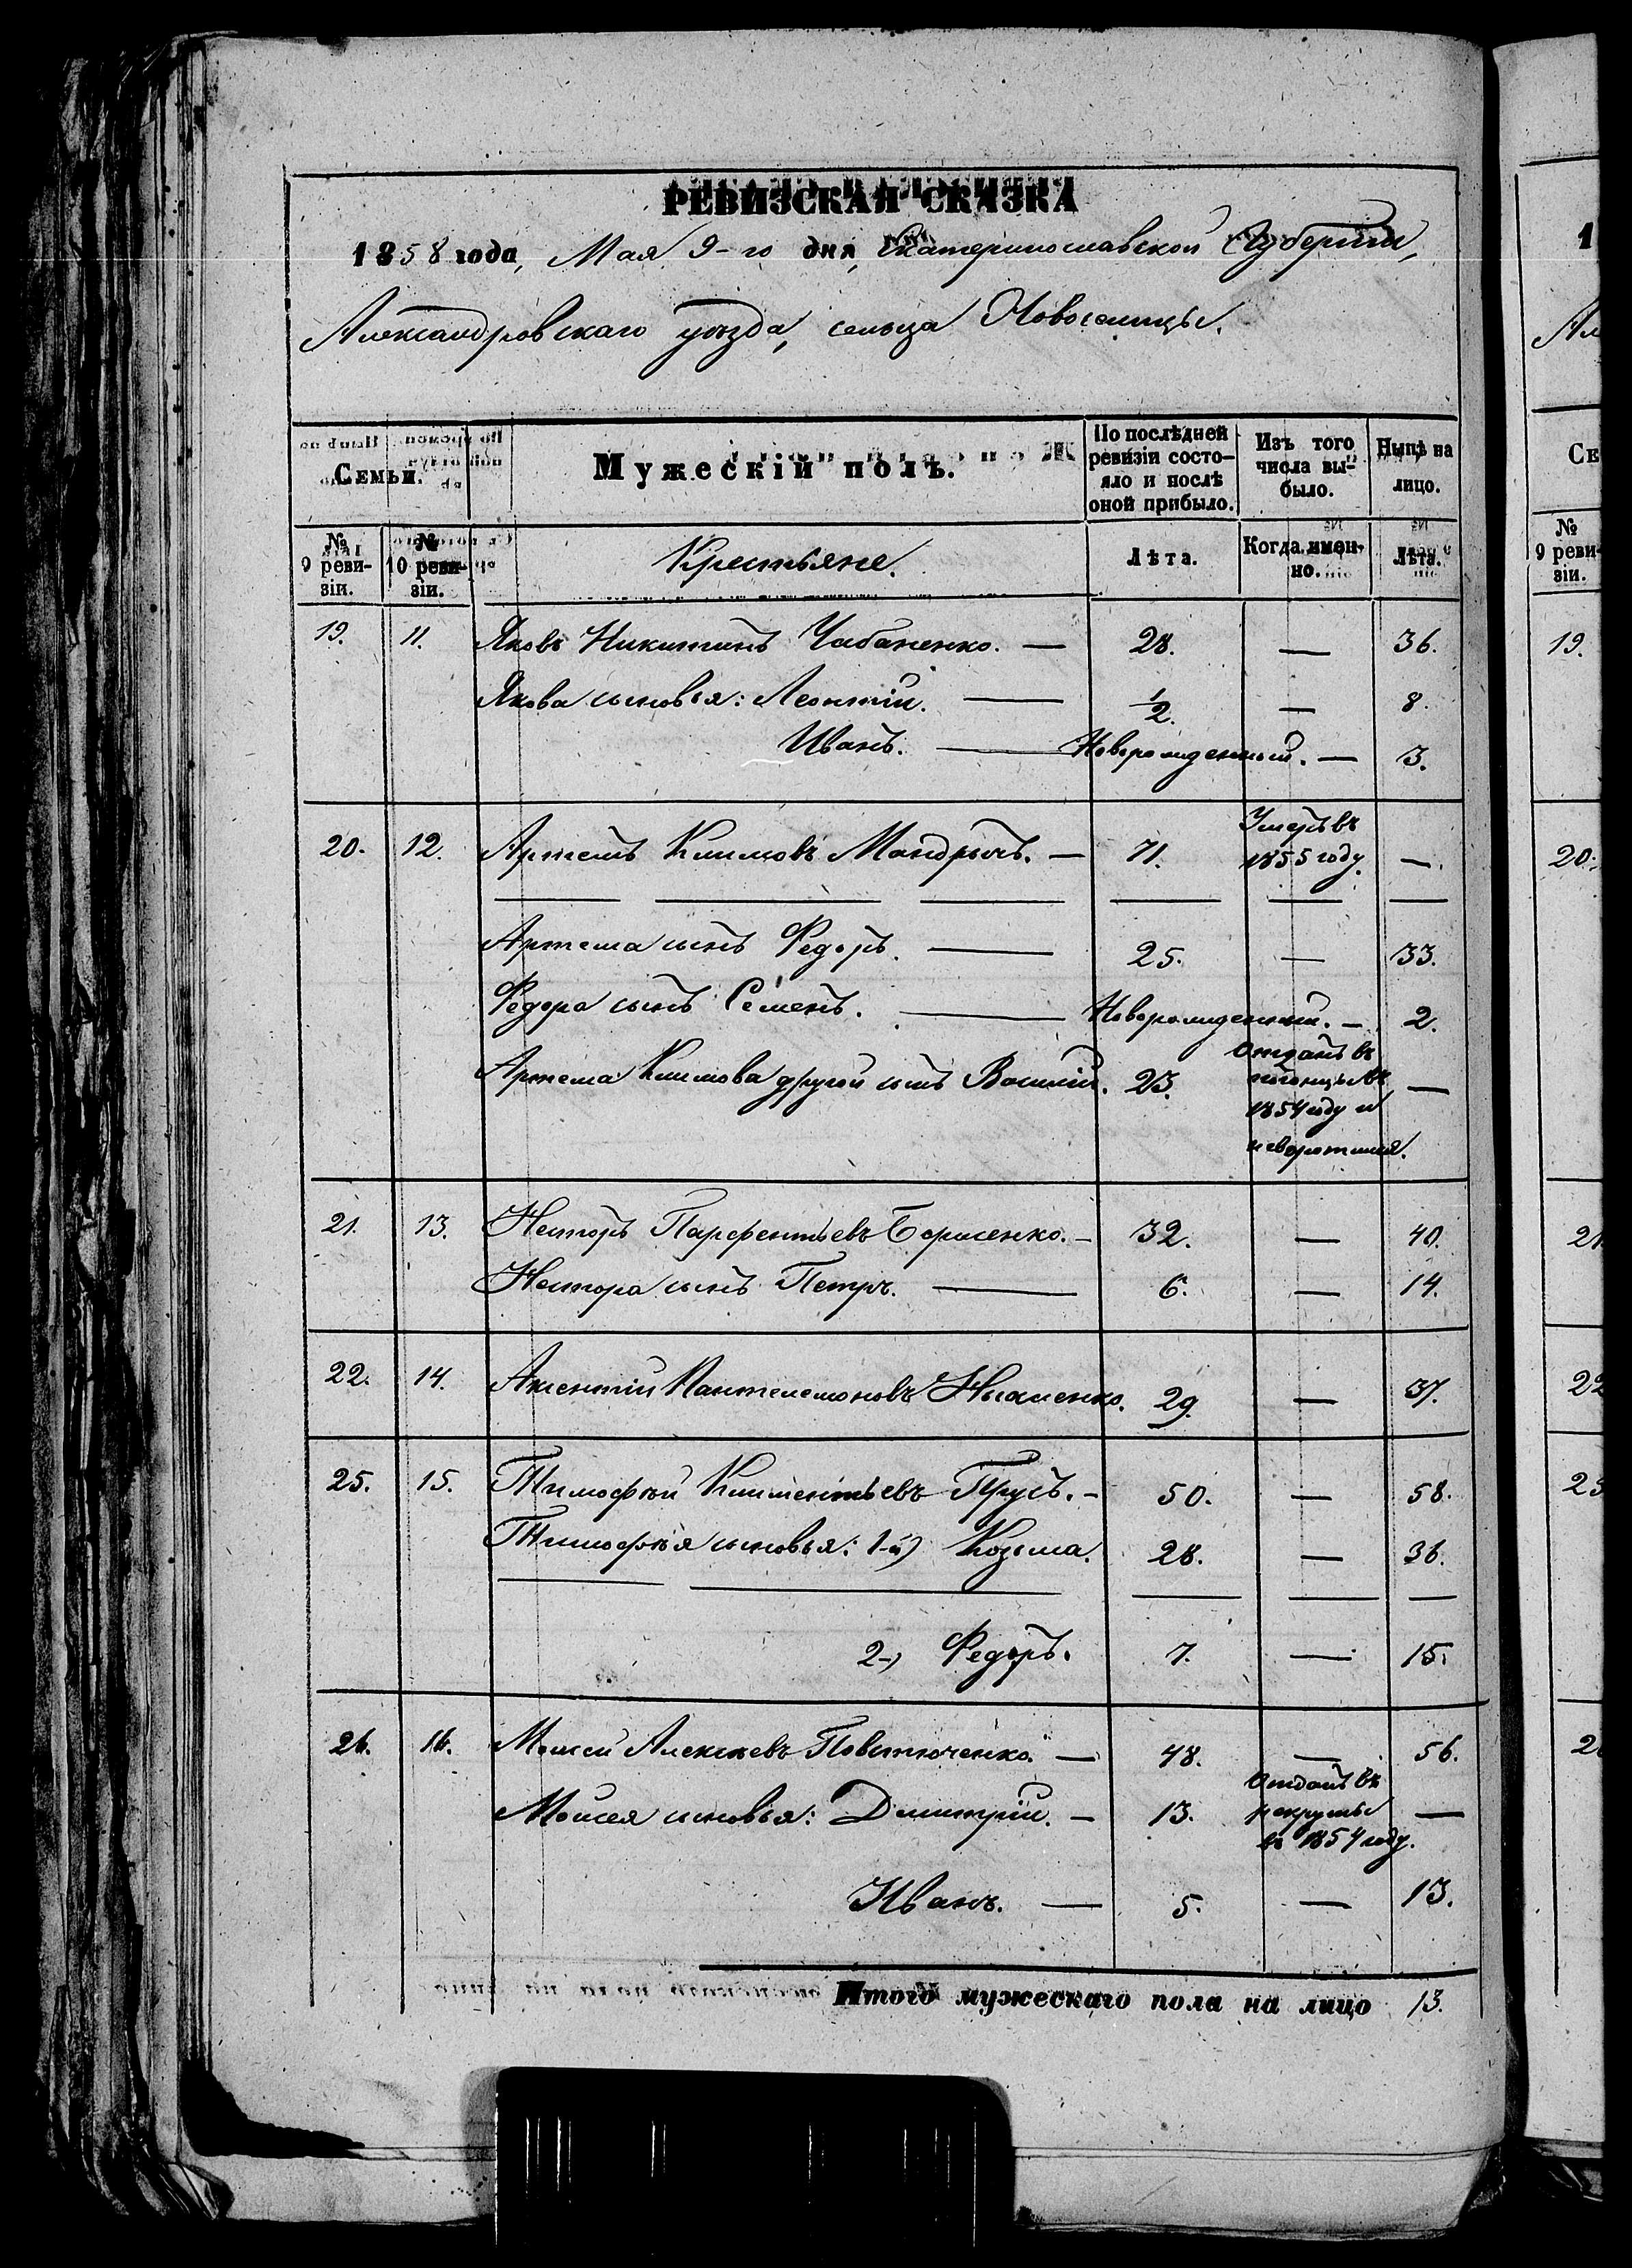 РЕВИЗСКАЯ СКАЗКА
1858 года, Мая 9-го дня, Екатеринославской Губерніи,
Александровскаго уѣзда, сельца Новоселицы.
Семьи.
Мужескій полъ.
По послѣдней ревизіи состояло и послѣ оной прибыло.
Изъ того числа выбыло.
Нынѣ на лицо.
№ 9 ревизіи.
№ 10 ревизіи.
Крестьяне.
Лѣта.
Когда именно.
Лѣта.
19. 11. Яковъ Никитинъ Чабаненко. — 28. — 36.
Якова сыновья: Леонтій. — 1/2. — 8.
Иванъ. — Новорожденный. — 3.
20. 12. Артемъ Климовъ Мандрычъ. — 71. Умеръ въ 1855 году. —
Артема сынъ Федоръ. — 25. — 33.
Федора сынъ Семенъ. — Новорожденный. — 2.
Артема Климова другой сынъ Василій. 23. Отданъ въ погонцы въ 1854 году и невротился. —
21. 13. Несторъ Парфентьевъ Борисенко. — 32. — 40.
Нестора сынъ Петръ. — 6. — 14.
22. 14. Аксентій Пантелемоновъ 29. — 37.
25. 15. Тимофѣй Климентьевъ Прусъ. — 50. — 58.
Тимофѣя сыновья: 1-й) Козьма. 28. — 36.
2-) Федоръ. 7. — 15.
26. 16. Моисей Алексѣевъ — 48. — 56.
Моисея сыновья: Димитрій. — 13. Отданъ въ рекруты въ 1854 году. —
Иванъ. — 5. — 13.
Итого мужескаго пола на лицо 13.
1
Ал
Се
№ 9 реви-
зіи.
19.
20.
21
22